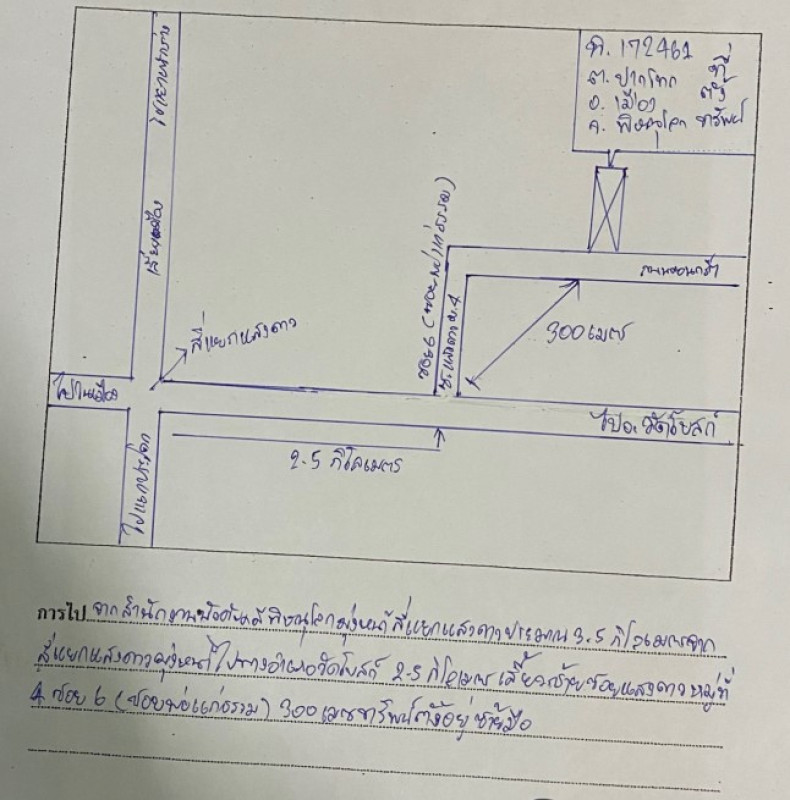 ค. 172461
ต. ปากโทก
อ. เมือง
จ. พิษณุโลก
ที่
ตั้ง
ทรัพย์
เลี่ยงเมือง
สี่แยกแสงดาว
ไปในเมือง
ซอย 6
ซ.แสงดาว ม.4
300 เมตร
ไป อ. วัดโบสถ์
2.5 กิโลเมตร
การไป จากสำนักงานบังคับคดีพิษณุโลกมุ่งหน้าสี่แยกแสงดาวประมาณ 3.5 กิโลเมตรจาก
สี่แยกแสงดาวมุ่งหน้าไปทางอำเภอวัดโบสถ์ 2.5 กิโลเมตร เลี้ยวซ้ายซอยแสงดาวหมู่ที่
4 ซอย 6 (ซอยพ่อแก่ธรรม) 300 เมตรทรัพย์ตั้งอยู่ซ้ายมือ